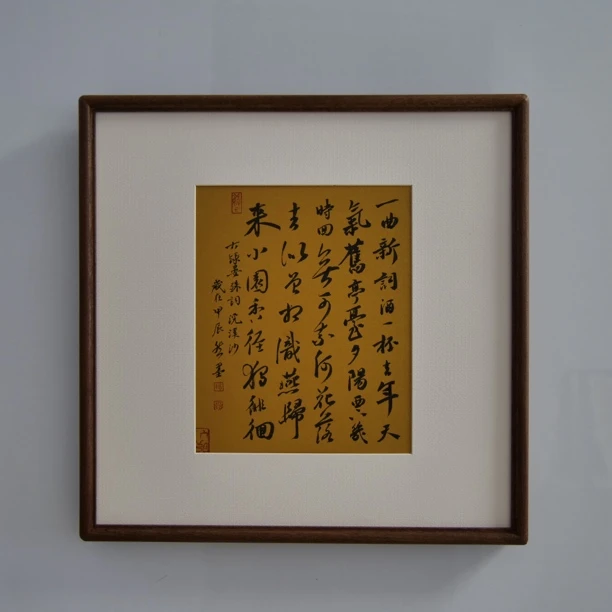 一曲新詞酒一杯去年天
氣舊亭臺夕陽西下幾
時回無可奈何花落
去似曾相識燕歸
來小園香徑獨徘徊
錄晏殊詞浣溪沙
歲在甲辰墨